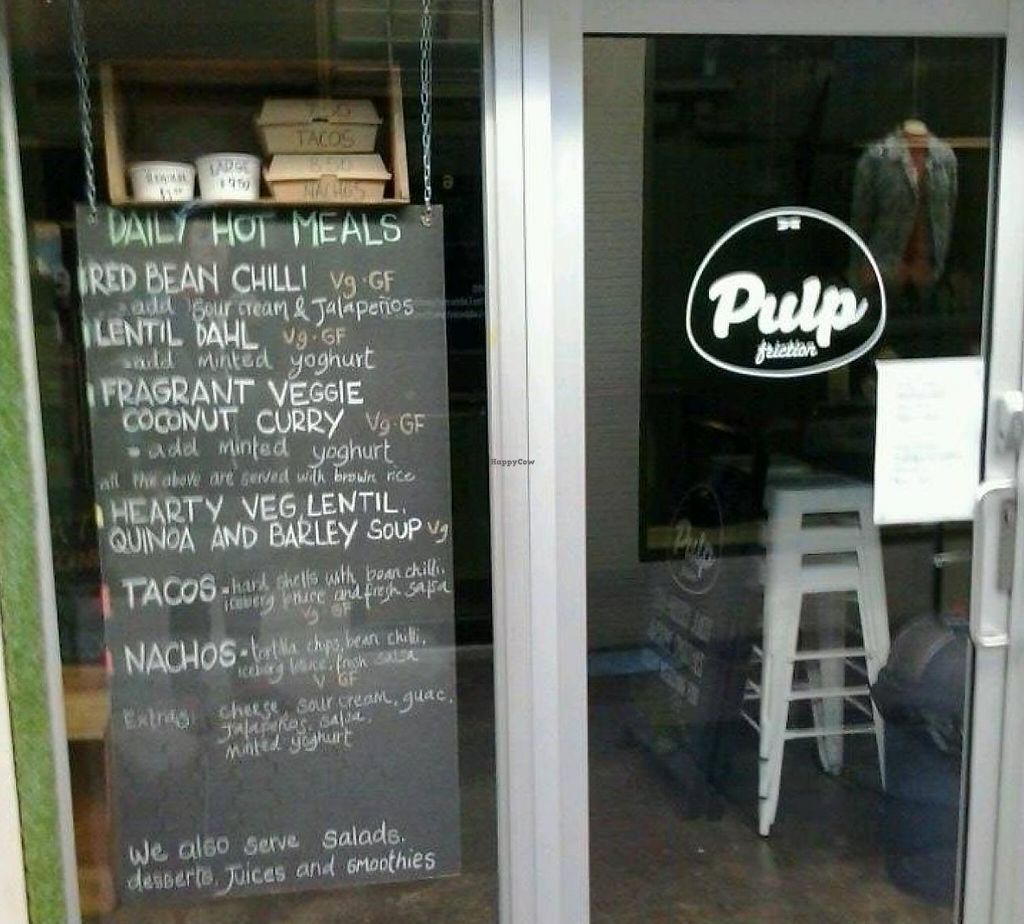 TACOS
LARGE
$7.50
8.50
NACHOS
DAILY HOT MEALS
RED BEAN CHILLI Vg.GF
add sour cream & Jalapeños
LENTIL DAHL Vg.GF
add minted yoghurt
FRAGRANT VEGGIE
COCONUT CURRY Vg.GF
add minted yoghurt
all the above are served with brown rice
HEARTY VEG, LENTIL,
QUINOA AND BARLEY SOUP Vg
TACOS - hard shells with bean chilli,
iceberg lettuce and fresh salsa
Vg GF
NACHOS - tortilla chips, bean chilli,
iceberg lettuce, fresh salsa
V GF
Extras cheese, sour cream, guac,
Jalapeños, salsa,
minted yoghurt
We also serve salads,
desserts, Juices and smoothies
Pulp
friction
HappyCow
Pulp